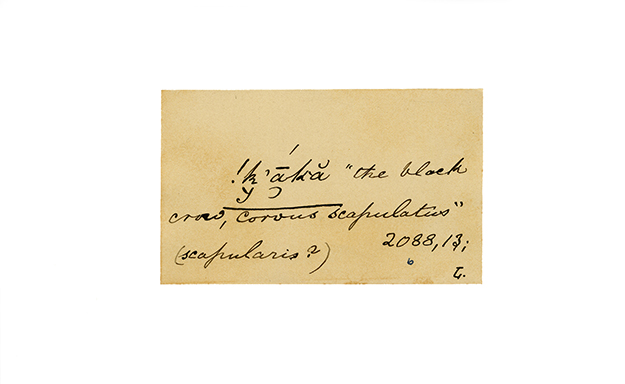 !k̓ā́kă "the black
crow, corvus scapulatus"
(scapularis?) 2088,13;
L.